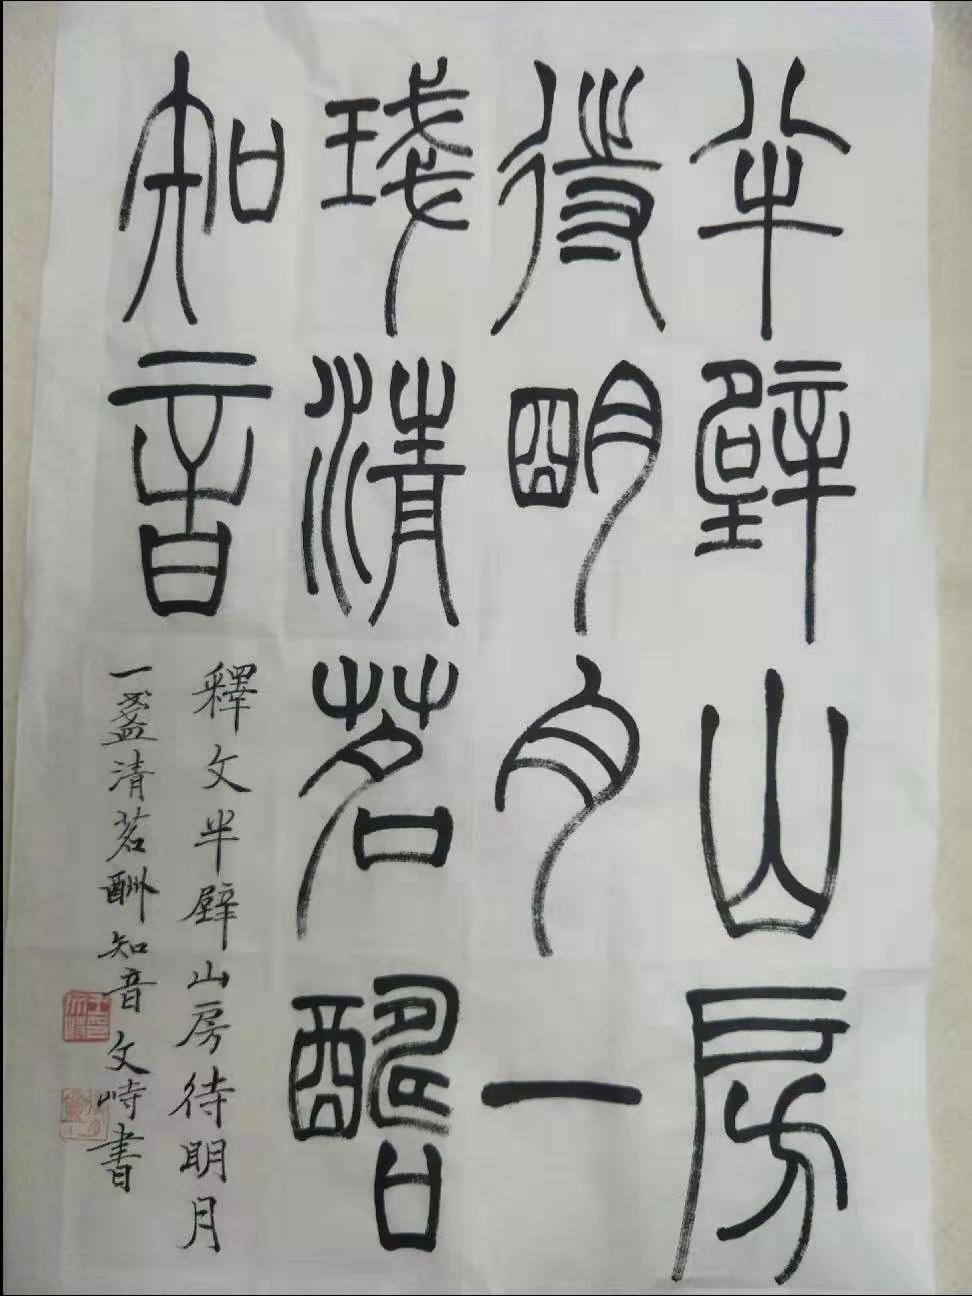 半壁山房
待明月一
琖清茗醻
知音
釋文半壁山房待明月
一盞清茗酬知音文峙書